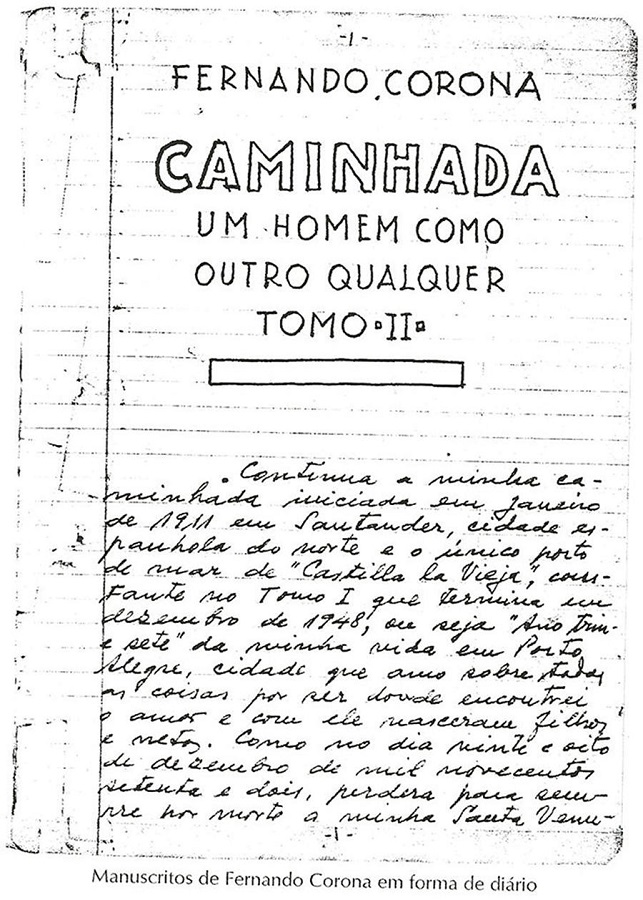 -1-
FERNANDO CORONA
CAMINHADA
UM HOMEM COMO
OUTRO QUALQUER
TOMO II
Continua a minha ca-
minhada iniciada em Janeiro
de 1911 em Santander, cidade es-
panhola do norte e o único porto
de mar de "Castilla la Vieja", cons-
tante no Tomo I que termina em
dezembro de 1948, ou seja "Ano trin-
e sete" da minha vida em Porto
Alegre, cidade que amo sobre todas
as coisas por ser donde encontrei
o amor e com ele nasceram filhos
e netos. Como no dia vinte e oito
de dezembro de mil novecentos
setenta e dois, perdera para sem-
pre por morte a minha Santa Venu-
-1-
Manuscritos de Fernando Corona em forma de diário